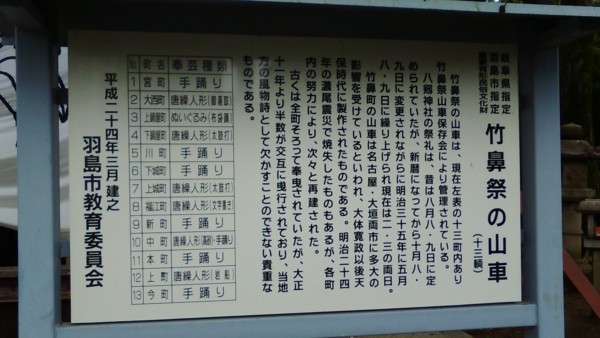 岐阜県指定
羽島市指定
重要有形民俗文化財
竹鼻祭の山車
(十三輌)
竹鼻祭の山車は、現在左表の十三町内あり
竹鼻祭山車保存会により管理されている。
八剱神社の祭礼は、昔は八月八、九日に定
められていたが、新暦になってから十月八・
九日に変更されさらに明治三十五年に五月
八・九日に繰り上げられ現在は二・三の両日。
竹鼻町の山車は名古屋・大垣両市に多大の
影響を受けているといわれ、大体寛政以後天
保時代に製作されたものである。明治二十四
年の濃尾震災で焼失したものもあるが、各町
内の努力により、次々と再建された。
古くは全町そろって奉曳されていたが、大正
十一年より半数が交互に曳行されており、当地
方の風物詩として欠かすことのできない貴重な
ものである。
No. 町名 奉芸種類
1 宮町 手踊り
2 大西町 唐繰人形
3 上鍋屋町 ぬいぐるみ(布袋)
4 下鍋屋町 唐繰人形(太鼓打)
5 川町 手踊り
6 下城町 手踊り
7 上城町 唐繰人形(太鼓打)
8 福江町 唐繰人形(文字書き)
9 新町 手踊り
10 中町 唐繰人形・手踊り
11 本町 手踊り
12 上町 唐繰人形(岩船)
13 今町 手踊り
平成二十四年三月建之
羽島市教育委員会